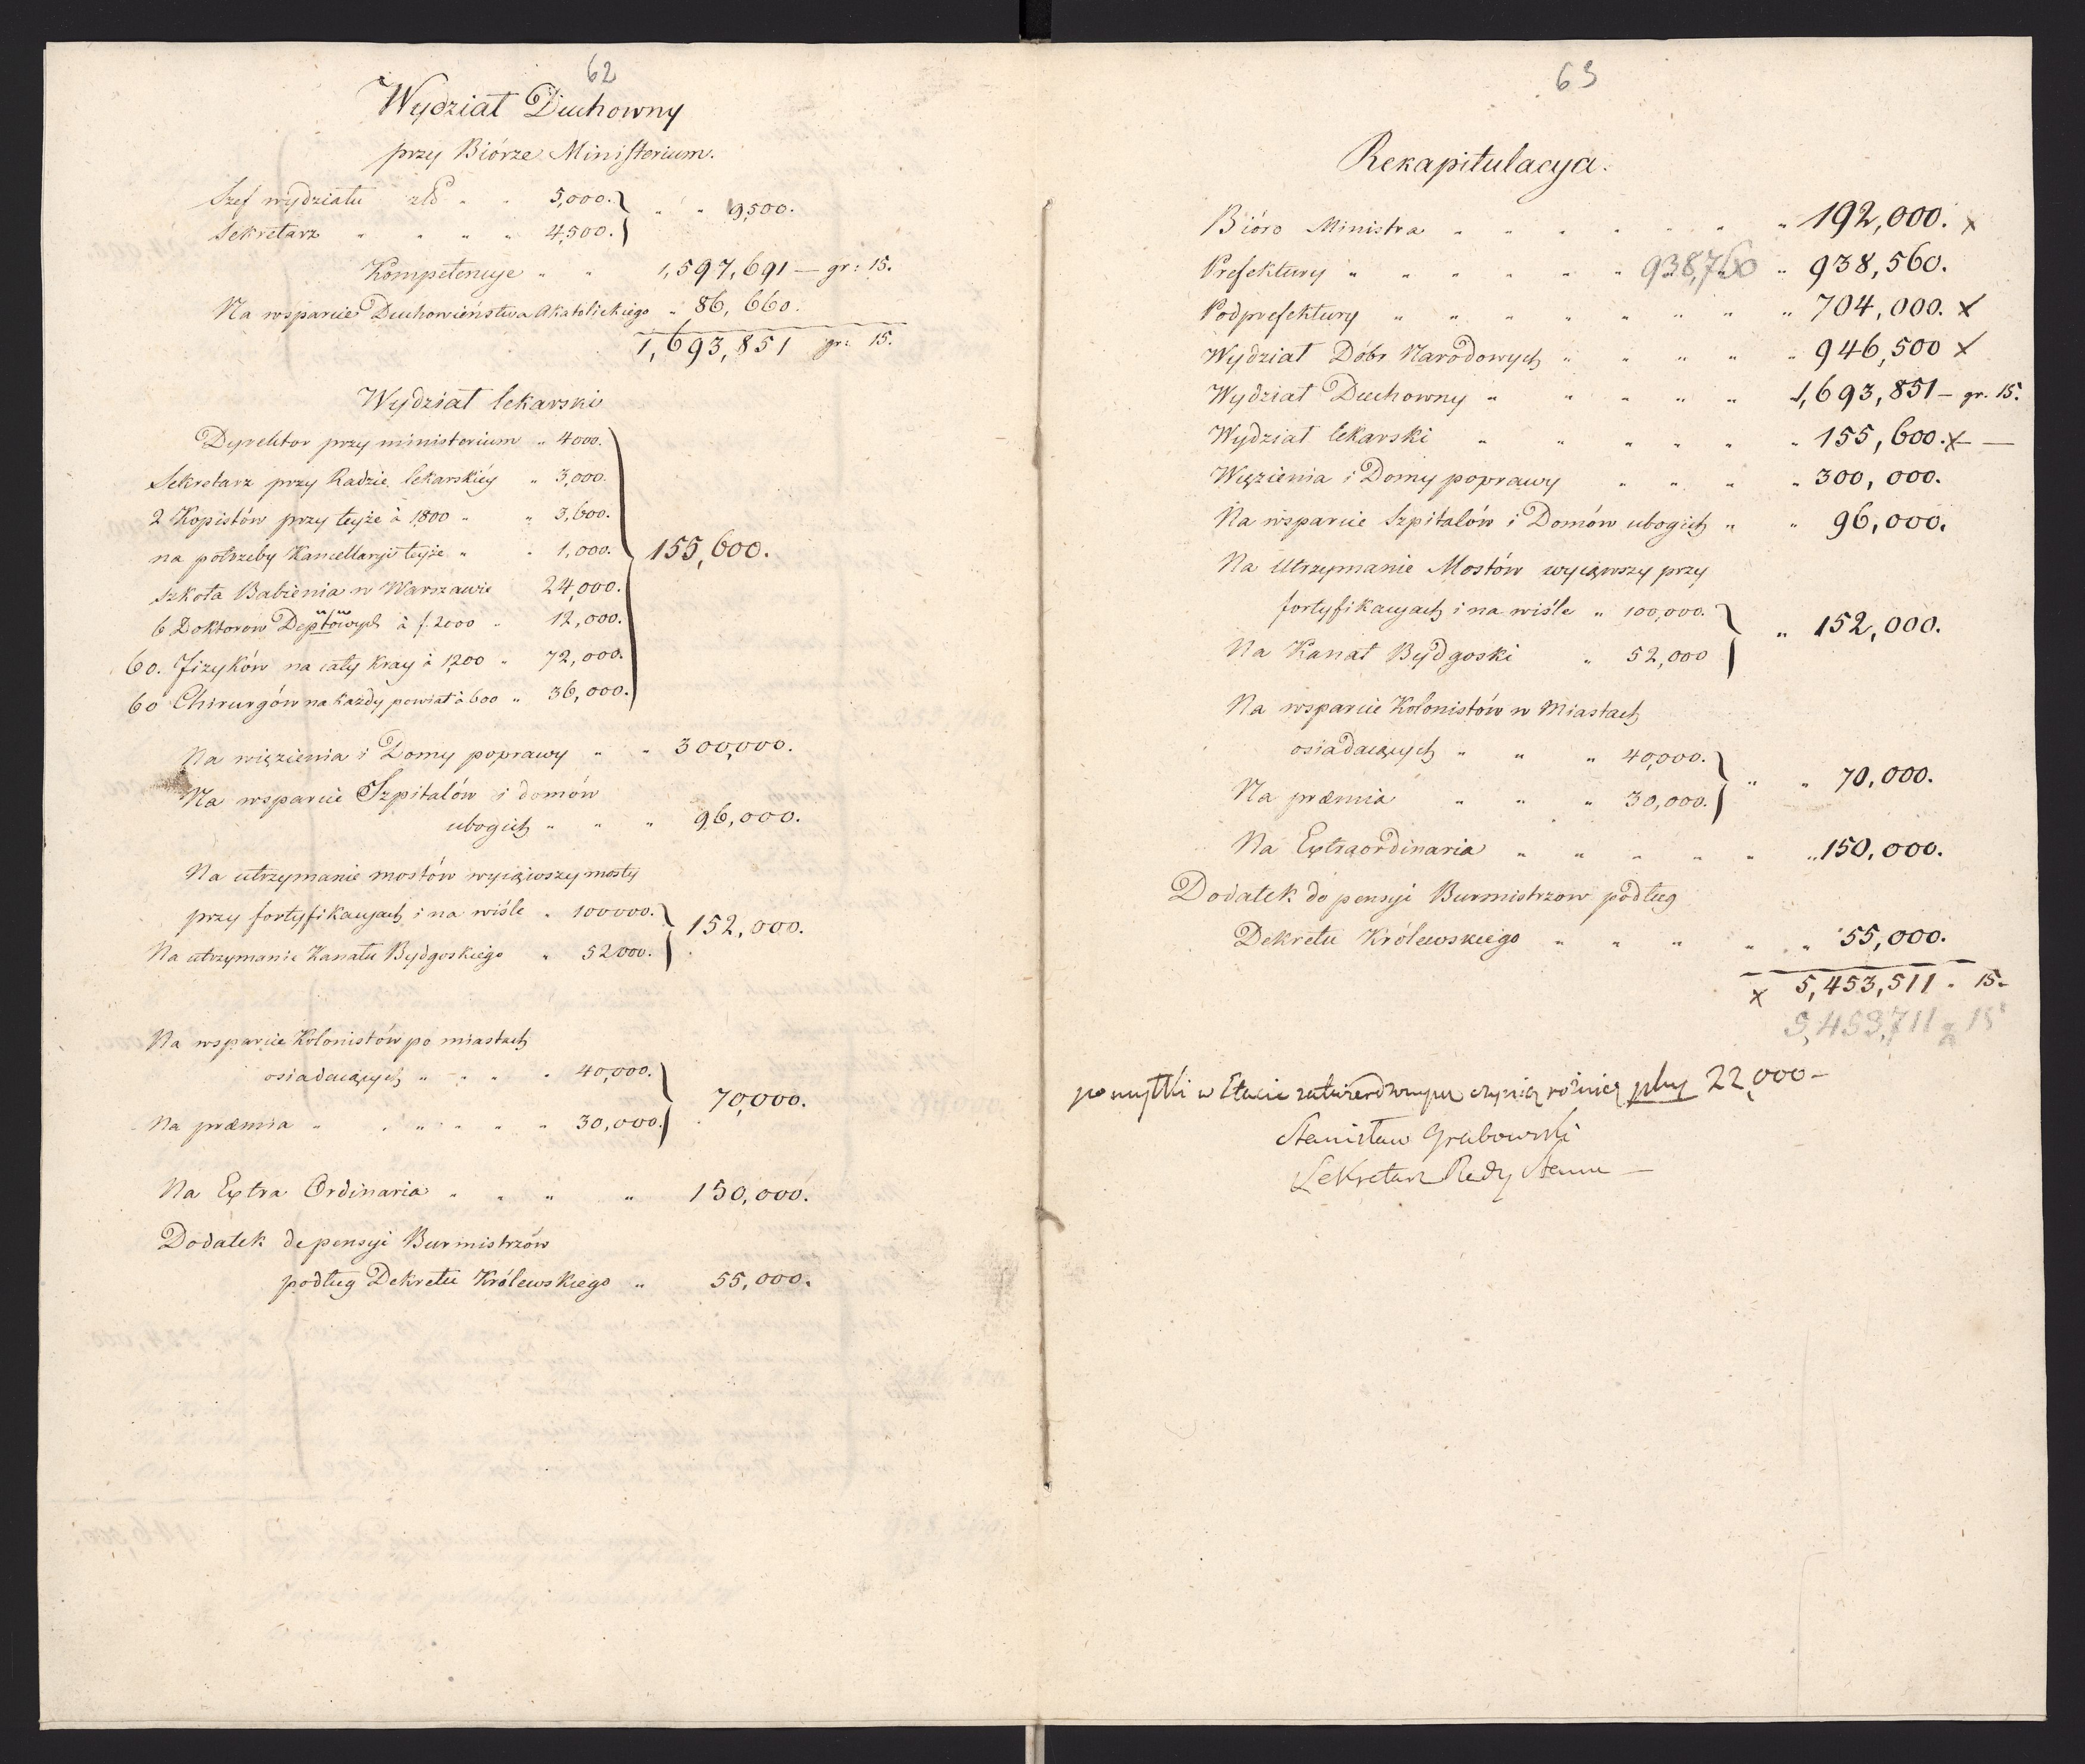 62
Wydział Duchowny
przy Biórze Ministerium.
Szef wydziału złł " " 5,000.
9,500.
Sekretarz " " " " 4,500.
Kompetencye " " 1,597,691 — gr: 15.
Na wsparcie Duchowieństwa Akatolickiego " 86,660.
1,693,851 gr: 15.
Wydział lekarski
Dyrektor przy ministerium " 4000.
Sekretarz przy Radzie lekarskiéy " 3,000.
2 Kopistów przy teyże à 1,800 " " 3,600.
na potrzeby Kancellaryi teyże " " 1,000.
155,600.
Szkoła Babienia w Warszawie 24,000.
6 Doktorow Deptowych à f. 2000 " 12,000.
60. Fizyków na cały Kray à 1,200 " 72,000.
60 Chirurgów na każdy powiat à 600 " 36,000.
Na więzienia i Domy poprawy " " 300,000.
Na wsparcie Szpitalów i domów
ubogich " " " 96,000.
Na utrzymanie mostów wyiąwszy mosty
przy fortyfikacyach i na wiśle " 100000.
152,000.
Na utrzymanie Kanału Bydgoskiégo " 52000.
Na wsparcie Kolonistów po miastach
osiadaiących " " " " 40,000.
70,000.
Na præmia " " " " " " 30,000.
Na Extra Ordinaria " " " " 150,000.
Dodatek do pensyi Burmistrzów
podług Dekretu Królewskiego " 55,000.
63
Rekapitulacya.
Bióro Ministra " " " " " " " 192,000. x
Prefektury " " " " " " 938,760 " 938,560.
Podprefektury " " " " " " " " 704,000. x
Wydział Dóbr Narodowych " " " " " 946,500 x
Wydział Duchowny " " " " " 1,693,851 — gr. 15.
Wydział lekarski " " " " " " 155,600. x —
Więzienia i Domy poprawy " " " " 300,000.
Na wsparcie Szpitalów i Domów ubogich " " 96,000.
Na Utrzymanie Mostów wyiąwszy przy
fortyfikacyach i na wiśle " 100,000.
" 152,000.
Na Kanał Bydgoski " 52,000
Na wsparcie Kolonistów w Miastach
osiadaiących " " " 40,000.
" " 70,000.
Na præmia " " " 30,000.
Na Extraordinaria " " " " " " 150,000.
Dodatek do pensyi Burmistrzow podług
Dekretu Królewskiego " " " " " 55,000.
x 5,453,511 " 15.
5,453,711 g 15
pomyłki w Etacie zatwierdzonym czynią różnicę plus 22,000 —
Stanisław Grabowski
Sekretarz Rady Stanu —